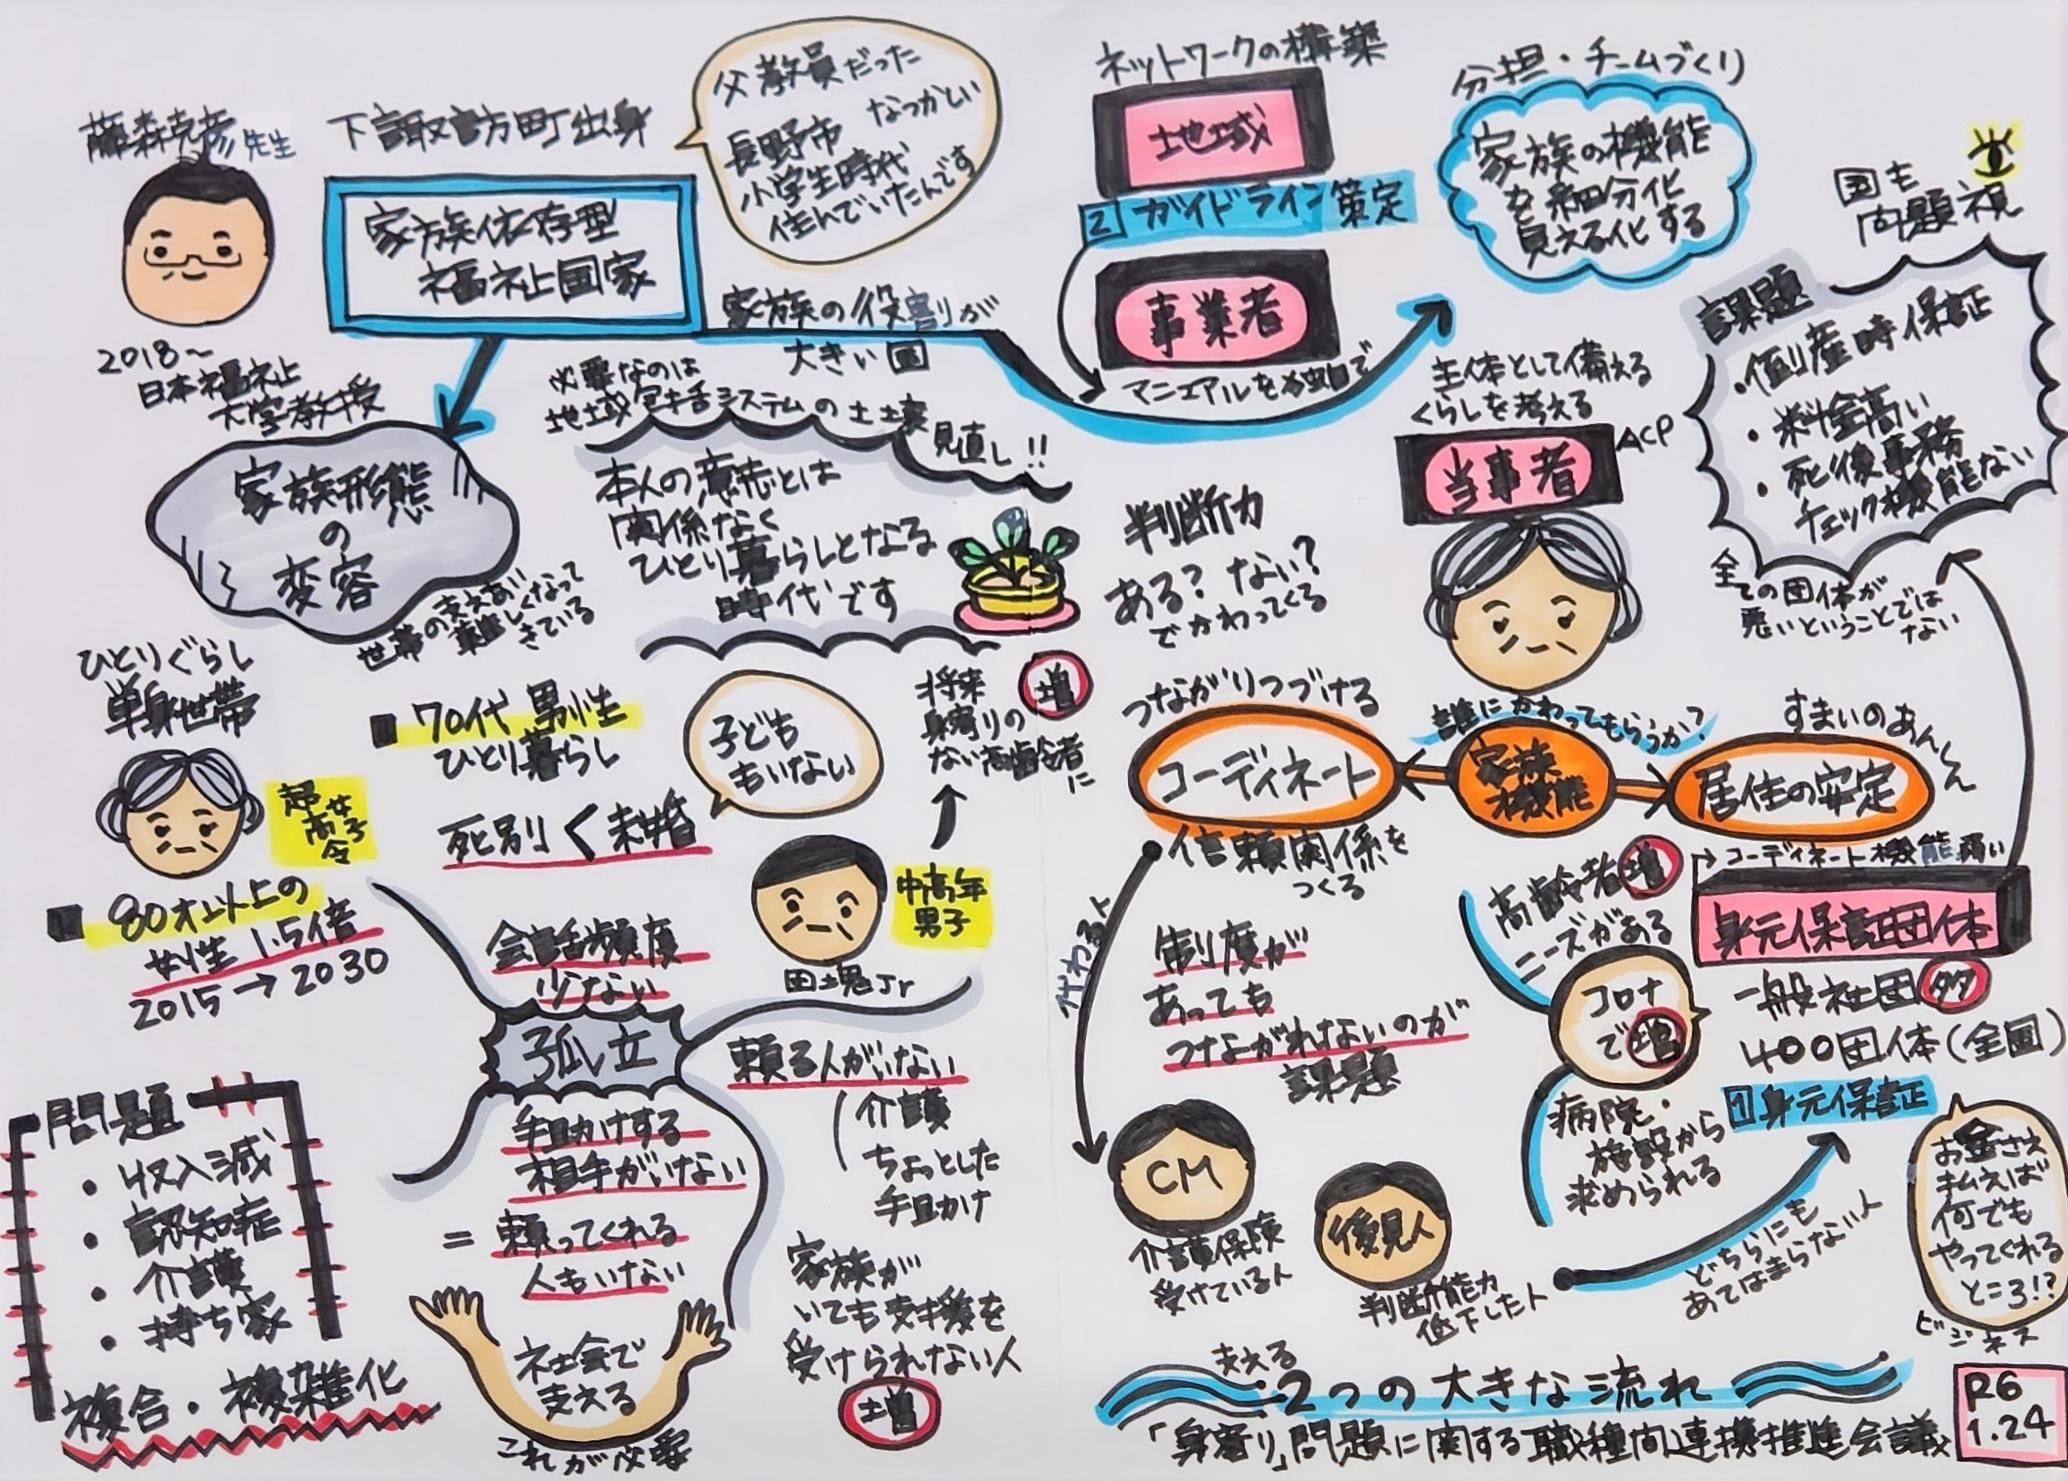 藤森克彦先生
2018〜
日本福祉
大学教授
下諏訪町出身
父教員だった
なつかしい
長野市
小学生時代
住んでいたんです
家族依存型
福祉国家
家族の役割が
大きい国
家族形態
の
変容
世帯の支えあい
難しくなって
きている
必要なのは
地域包括システムの土壌
見直し!!
本人の意志とは
関係なく
ひとり暮らしとなる
時代です
ひとりぐらし
単身世帯
超高令
女子
■80才以上の
女性 1.5倍
2015→2030
■70代 男性
ひとり暮らし
死別<未婚
子ども
もいない
中高年
男子
団塊Jr
将来
身寄りの
ない高齢者
に
増
会話頻度
少ない
孤立
頼る人がいない
介護
ちょっとした
手助け
手助けする
相手がいない
=頼ってくれる
人もいない
社会で
支える
これが必要
家族が
いても支援を
受けられない人
増
問題
・収入減
・認知症
・介護
・持ち家
複合・複雑化
ネットワークの構築
地域
2 ガイドライン策定
事業者
マニュアルを独自で
分担・チームづくり
家族の機能
を細分化
見える化する
国も
問題視
課題
・倒産時保証
・料金高い
・死後事務
チェック機能ない
全ての団体が
悪いということでは
ない
主体として備える
くらしを考える
当事者
ACP
判断力
ある?ない?
でかわってくる
つながりつづける
コーディネート
誰にかわってもらうか?
家族
機能
すまいのあんしん
居住の安定
信頼関係を
つくる
代わる人
制度が
あっても
つながれないのが
課題
高齢者増
ニーズがある
コロナ
で増
→コーディネート機能弱い
身元保証団体
一般社団 多
400団体(全国)
1 身元保証
病院・
施設から
求められる
CM
介護保険
受けている人
後見人
判断能力
低下した人
どちらにも
あてはまらない人
お金さえ
払えば
何でも
やってくれる
ところ!?
ビジネス
支える
2つの大きな流れ
「身寄り」問題に関する職種間連携推進会議
R6
1.24